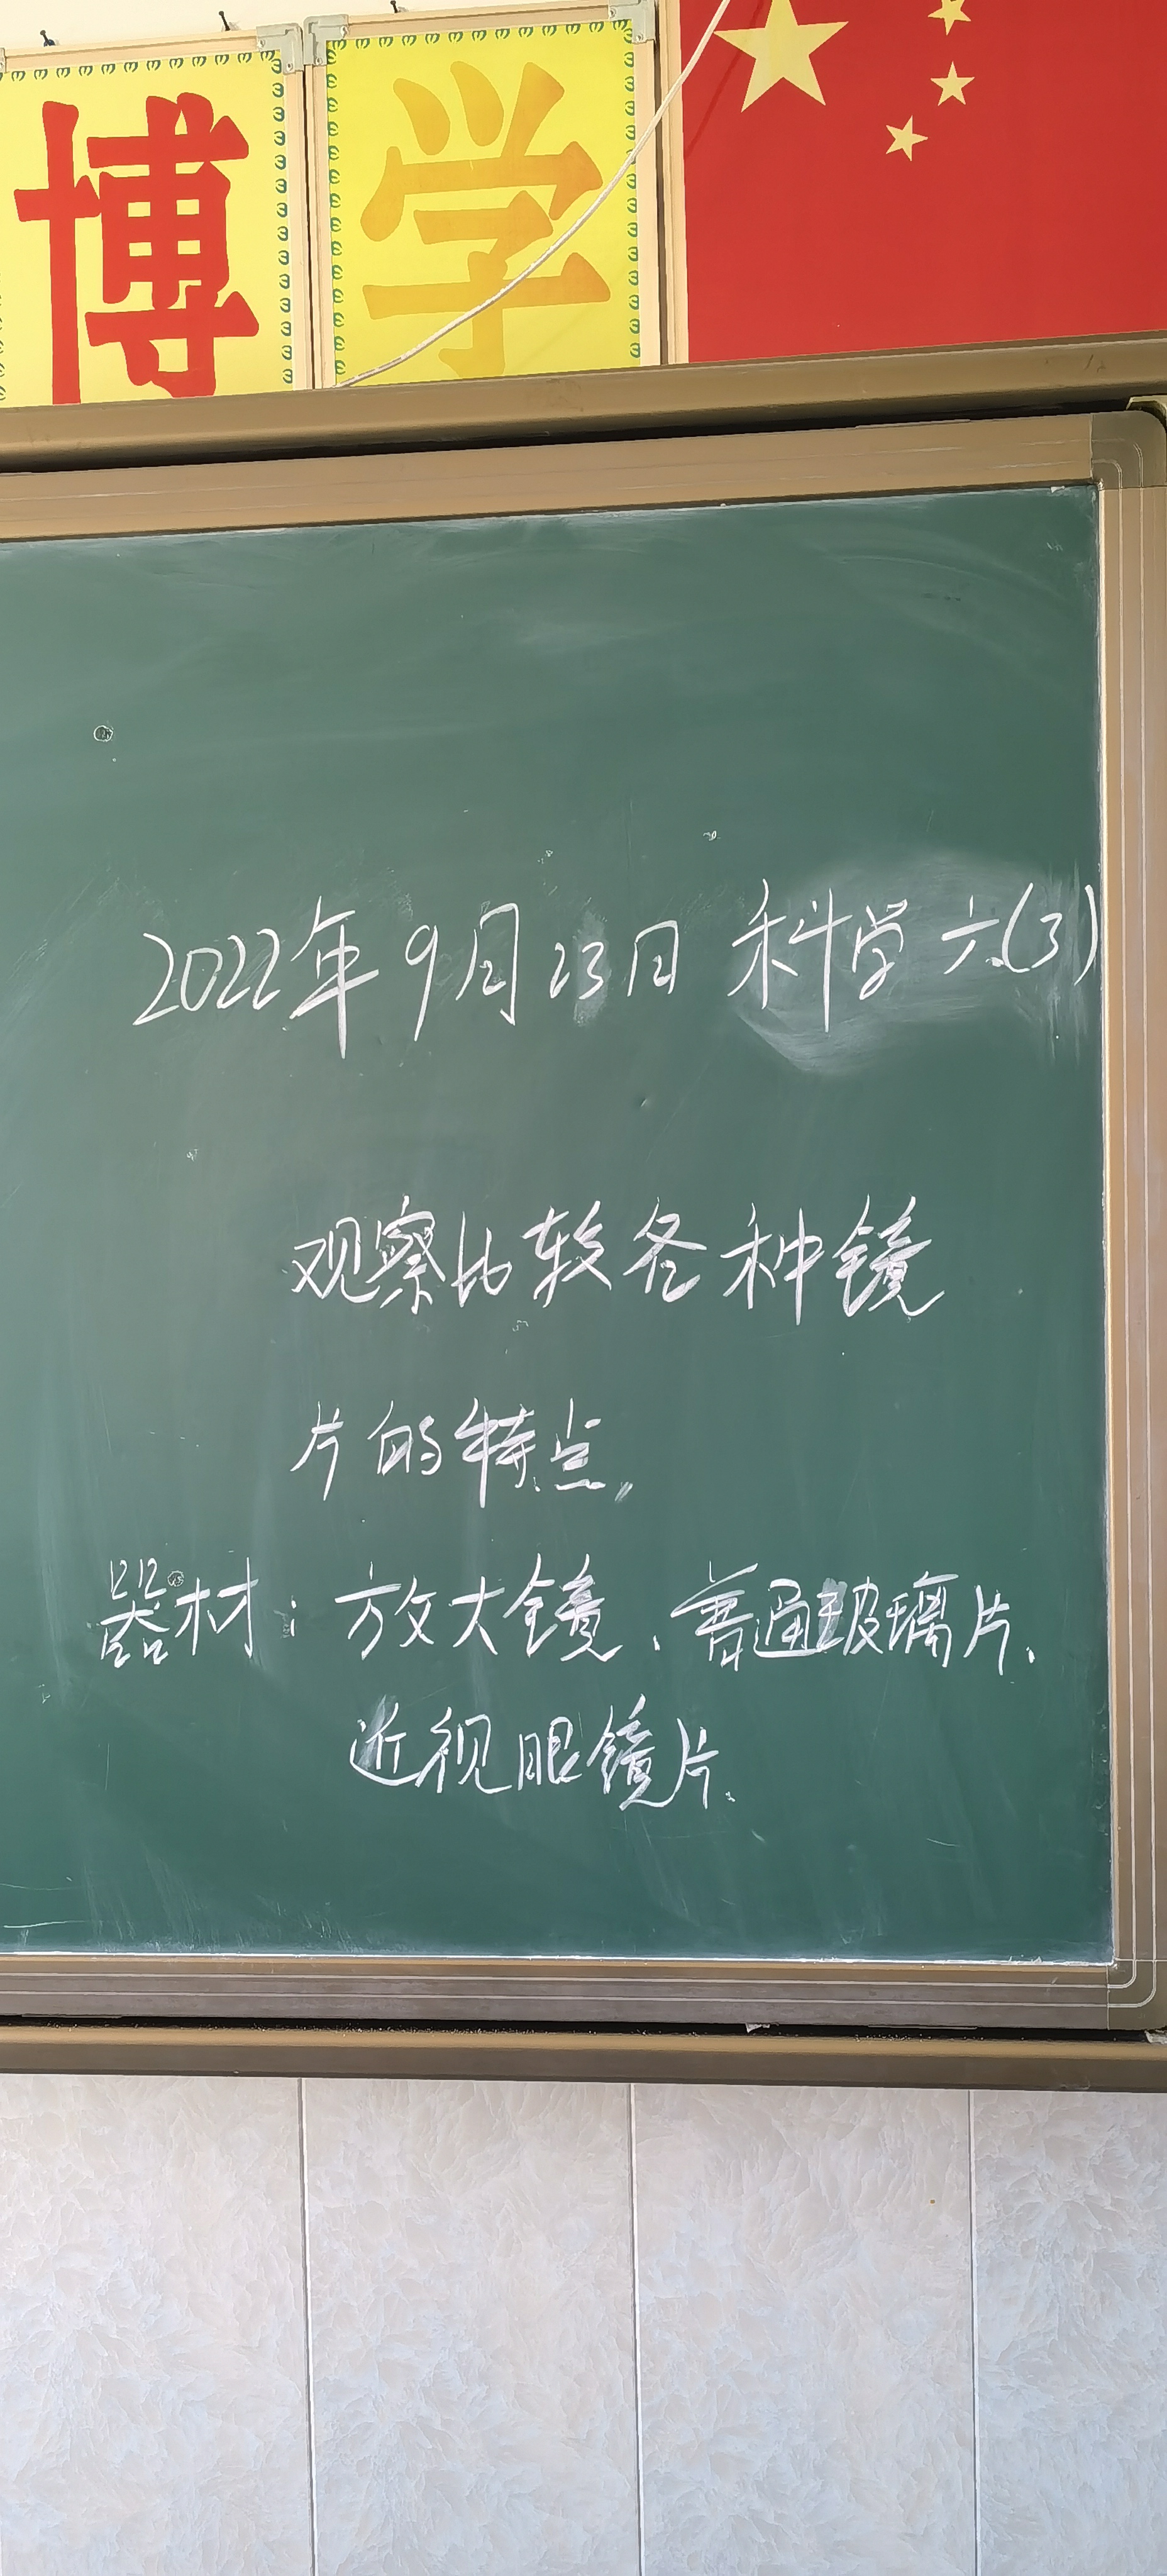 博学
2022年9月23日 科学 六(3)
观察比较各种镜
片的特点。
器材：放大镜、普通玻璃片、
近视眼镜片.